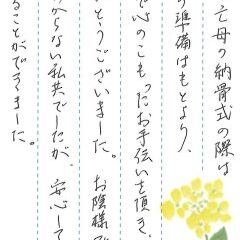 亡母の納骨式の際は
の準備はもとより、
で心のこもったお手伝いを頂き、
とうございました。 お陰様で
からない私共でしたが、安心して
ることができました。